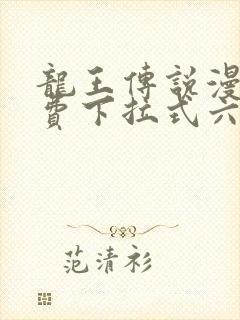 龍王傳說漫
費下拉式六
范清衫